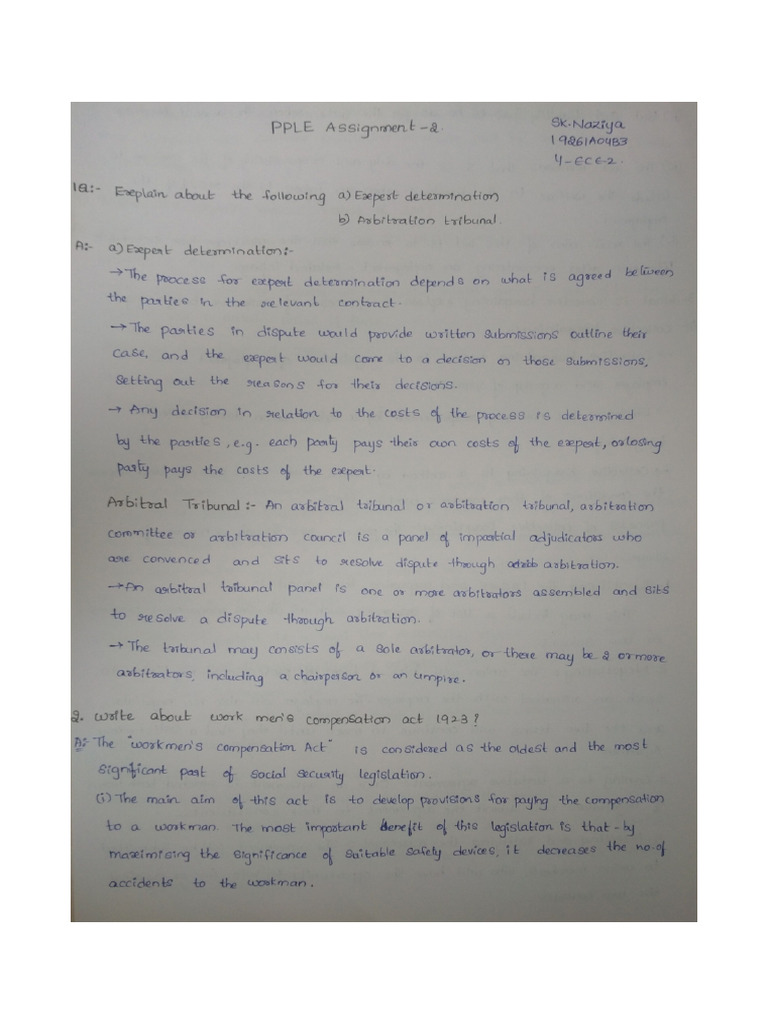 PPLE Assignment-2.
SK.Naziya
19261A04B3
4-ECE-2.
1Q:- Explain about the following a) Expert determination
b) Arbitration tribunal.
A:- a) Expert determination:-
→ The process for expert determination depends on what is agreed between
the parties in the relevant contract.
→ The parties in dispute would provide written submissions outline their
case, and the expert would come to a decision on those submissions,
setting out the reasons for their decisions.
→ Any decision in relation to the costs of the process is determined
by the parties, e.g. each party pays their own costs of the expert, or losing
party pays the costs of the expert.
Arbitral Tribunal:- An arbitral tribunal or arbitration tribunal, arbitration
committee or arbitration council is a panel of impartial adjudicators who
are convenced and sits to resolve dispute through arbitration.
→ An arbitral tribunal panel is one or more arbitrators assembled and sits
to resolve a dispute through arbitration.
→ The tribunal may consists of a sole arbitrator, or there may be 2 or more
arbitrators, including a chairperson or an umpire.
2. Write about work men's compensation act 1923?
A:- The "workmen's compensation Act" is considered as the oldest and the most
significant part of social security legislation.
(i) The main aim of this act is to develop provisions for paying the compensation
to a workman. The most important benefit of this legislation is that-by
maximising the significance of suitable safety devices, it decreases the no.of
accidents to the workman.